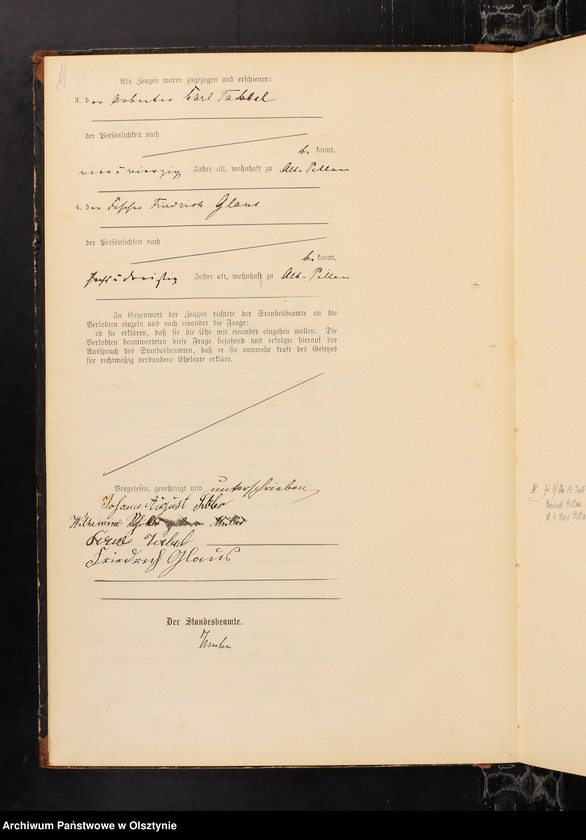 Als Zeugen waren zugezogen und erschienen:
3. der Arbeiter Karl
der Persönlichkeit nach
be kannt,
vier u vierzig Jahre alt, wohnhaft zu Alt-Pillau
4. der Fischer Friedrich Glaus
der Persönlichkeit nach
be kannt,
sechs u dreißig Jahre alt, wohnhaft zu Alt-Pillau
In Gegenwart der Zeugen richtete der Standesbeamte an die
Verlobten einzeln und nach einander die Frage:
ob sie erklären, daß sie die Ehe mit einander eingehen wollen. Die
Verlobten beantworteten diese Frage bejahend und erfolgte hierauf der
Ausspruch des Standesbeamten, daß er sie nunmehr kraft des Gesetzes
für rechtmäßig verbundene Eheleute erkläre.
Vorgelesen, genehmigt und unterschrieben
Johann August
Wilhelmine
Friedrich Glaus
Der Standesbeamte.
Archiwum Państwowe w Olsztynie